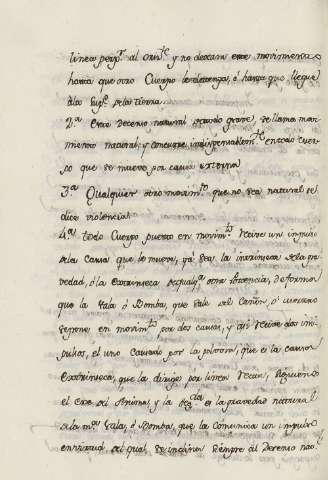 linea perp.r al oriz.te y no dexan este movimiento
hasta que otro Cuerpo los detenga, ó hasta que llegue
á la sup.e de la tierra.
2.a Este decenso natural de grave, se llama mo-
mento natural, y concurre indispensablem.te en todo cuer-
po que se mueve por causa externa
3.a Qualquier otro movim.to que no sea natural se
dice violencia
4.a todo Cuerpo puesto en movim.to recive un impulso
de la causa que le mueve, ya sea la intrinseca de la gra-
vedad, ó la extrinseca de qualq.a otra potencia, de forma
que la Vala ó Bomba, que sale del Cañon, ó mortero
se pone en movim.to por dos causas, y asi recive dos im-
pulsos, el uno causado por la polvora, que es la causa
extrinseca, que la dirije por linea recta, siguiendo
el exe del Anima, y la seg.da es la gravedad natural
de la m.ma Vala, ó Bomba, que la comunica un impulso
en virtud del qual se inclina siempre al decenso na-